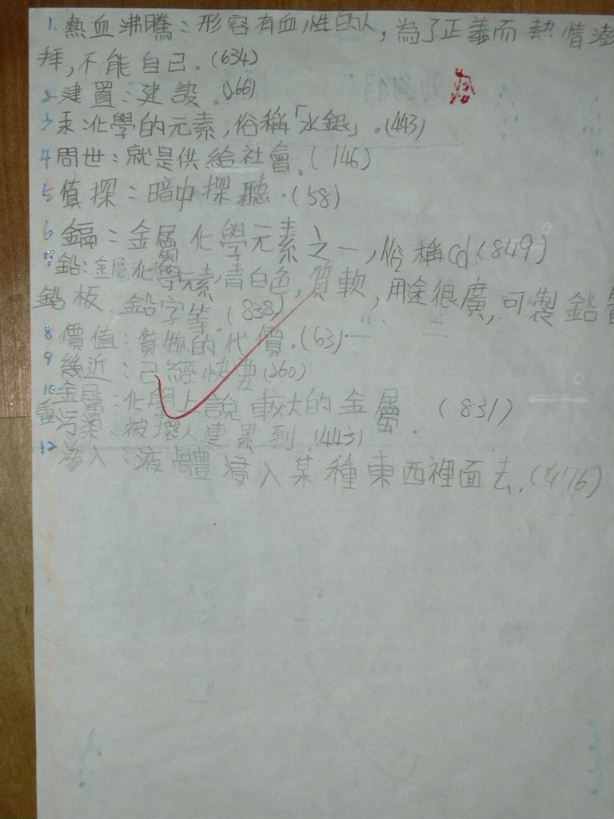 1. 熱血沸騰：形容有血性的人，為了正義而熱情澎
拜，不能自己。(634)
2 建置：建設。(266)
3 汞：化學的元素，俗稱「水銀」。(443)
4 問世：就是供給社會。(146)
5 偵探：暗中探聽。(58)
6 鎘：金屬化學元素之一，俗稱cd(849)
7 鉛：金屬化學元素，青白色，質軟，用途很廣，可製鉛
鉛板、鉛字等。(838)
8 價值：貨物的代價。(63)
9 幾近：已經快要(260)
10 重金屬：化學上說較大的金屬。(831)
污染：被壞人連累到。(443)
12 滲入：液體浸入某種東西裡面去。(476)